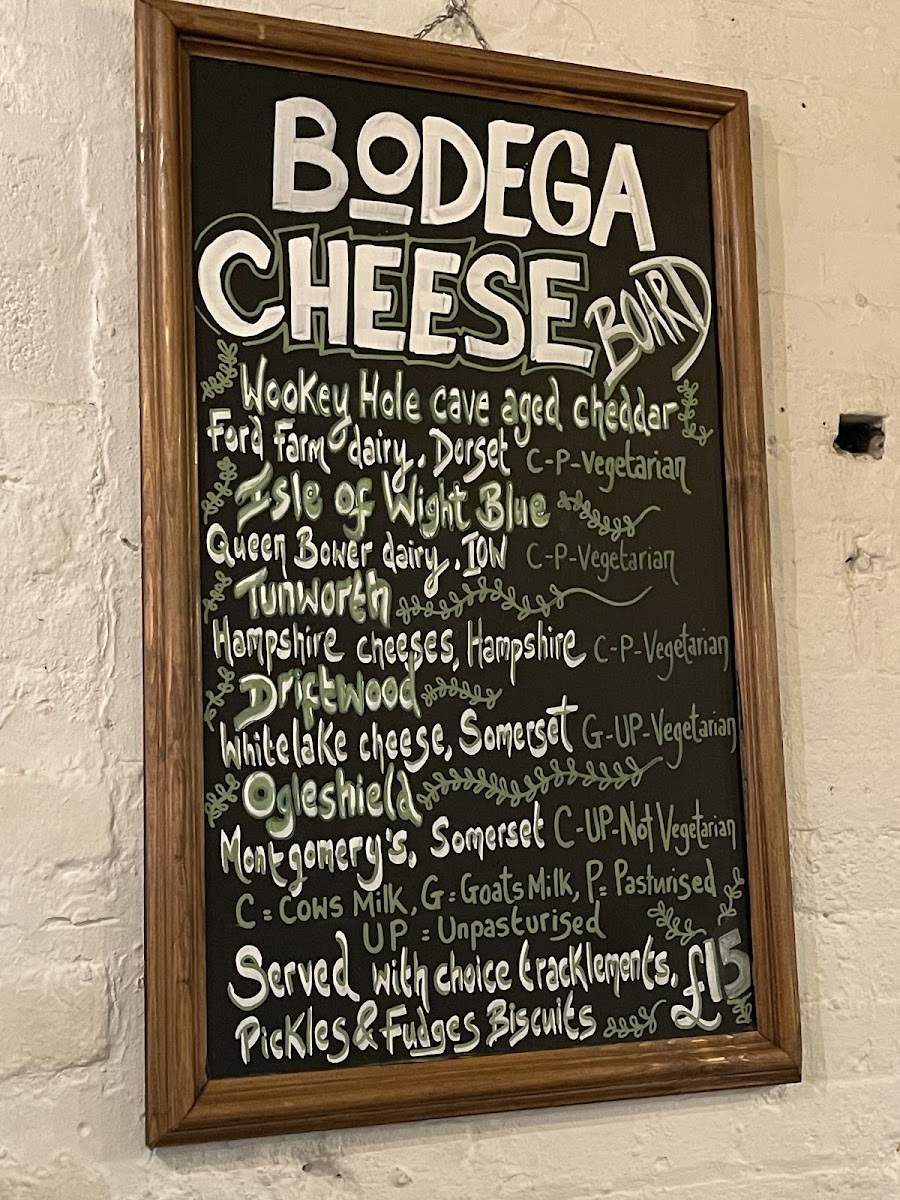 BODEGA
CHEESE BOARD
Wookey Hole cave aged cheddar
Ford Farm dairy, Dorset C-P-Vegetarian
Isle of Wight Blue
Queen Bower dairy, IOW C-P-Vegetarian
Tunworth
Hampshire cheeses, Hampshire C-P-Vegetarian
Driftwood
Whitelake cheese, Somerset G-UP-Vegetarian
Ogleshield
Montgomery's, Somerset C-UP-Not Vegetarian
C = Cows Milk, G = Goats Milk, P = Pasturised
UP = Unpasturised
Served with choice tracklements,
Pickles & Fudges Biscuits £15